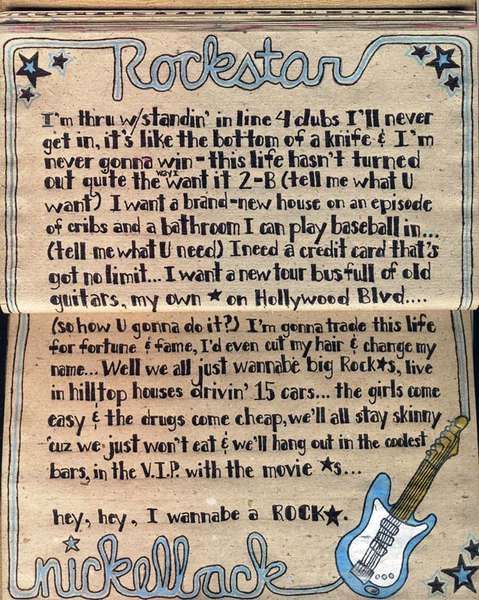 Rockstar
I'm thru w/standin' in line 4 clubs I'll never
get in, it's like the bottom of a knife & I'm
never gonna win - this life hasn't turned
out quite the way I want it 2-B (tell me what U
want) I want a brand-new house on an episode
of cribs and a bathroom I can play baseball in...
(tell me what U need) I need a credit card that's
got no limit... I want a new tour bus full of old
guitars, my own ★ on Hollywood Blvd....
(so how U gonna do it?) I'm gonna trade this life
for fortune & fame, I'd even cut my hair & change my
name... Well we all just wannabe big Rock★s, live
in hilltop houses drivin' 15 cars... the girls come
easy & the drugs come cheap, we'll all stay skinny
'cuz we just won't eat & we'll hang out in the coolest
bars, in the V.I.P. with the movie ★s...
hey, hey, I wannabe a ROCK★.
nickelback